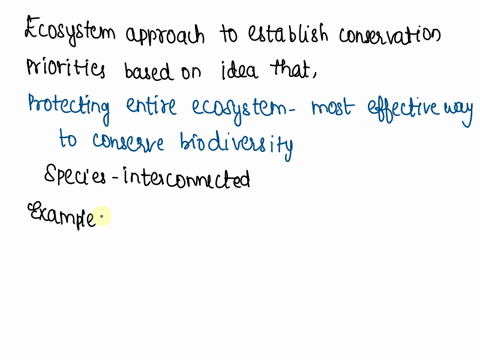 Ecosystem approach to establish conservation
priorities based on idea that,
Protecting entire ecosystem- most effective way
to conserve biodiversity
Species - interconnected
Example